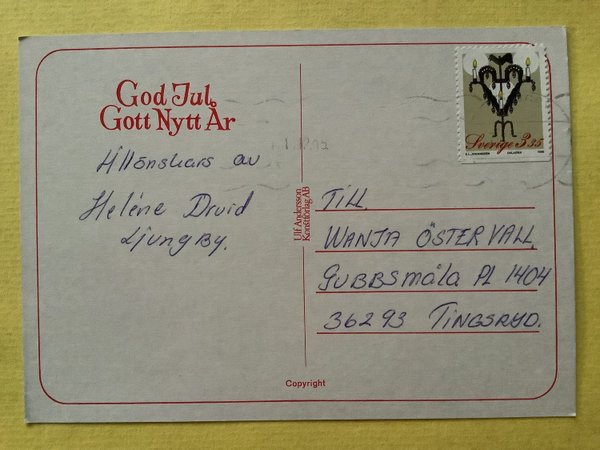 God Jul
Gott Nytt År
Tillönskars av
Heléne Druid
Ljungby.
Ulf Andersson
Konstförlag AB
TiLL
WANJA ÖSTERVALL
GUBBSMÅLA PL 1404
36293 TINGSRYD.
Sverige 3.35
Copyright